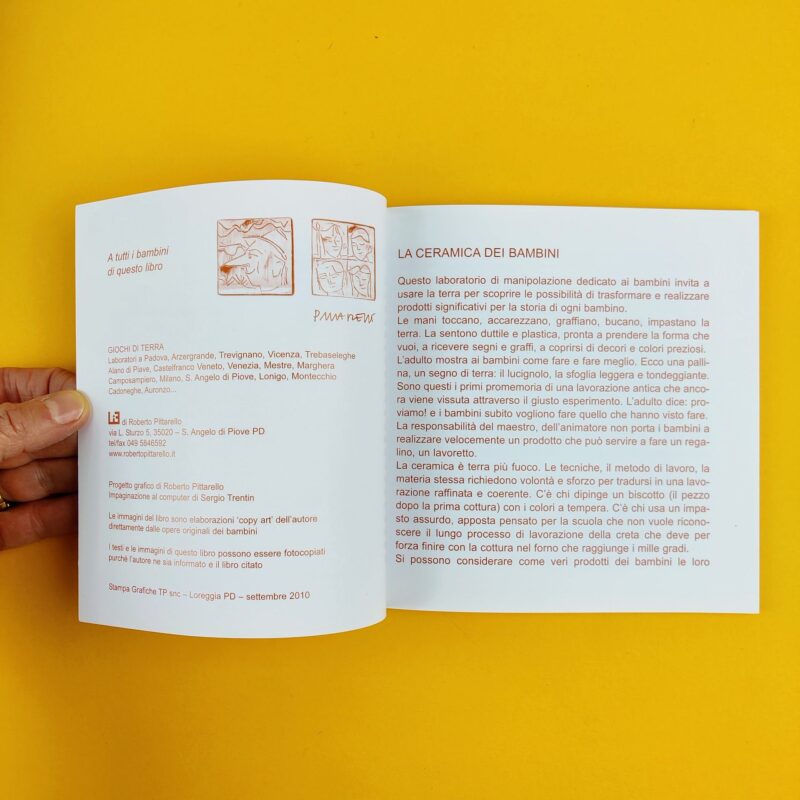 A tutti i bambini
di questo libro
GIOCHI DI TERRA
Laboratori a Padova, Arzergrande, Trevignano, Vicenza, Trebaseleghe
Alano di Piave, Castelfranco Veneto, Venezia, Mestre, Marghera
Camposampiero, Milano, S. Angelo di Piove, Lonigo, Montecchio
Cadoneghe, Auronzo...
di Roberto Pittarello
via L. Sturzo 5, 35020 – S. Angelo di Piove PD
tel/fax 049 5846592
www.robertopittarello.it
Progetto grafico di Roberto Pittarello
Impaginazione al computer di Sergio Trentin
Le immagini del libro sono elaborazioni 'copy art' dell'autore
direttamente dalle opere originali dei bambini
I testi e le immagini di questo libro possono essere fotocopiati
purchè l'autore ne sia informato e il libro citato
Stampa Grafiche TP snc – Loreggia PD – settembre 2010
LA CERAMICA DEI BAMBINI
Questo laboratorio di manipolazione dedicato ai bambini invita a
usare la terra per scoprire le possibilità di trasformare e realizzare
prodotti significativi per la storia di ogni bambino.
Le mani toccano, accarezzano, graffiano, bucano, impastano la
terra. La sentono duttile e plastica, pronta a prendere la forma che
vuoi, a ricevere segni e graffi, a coprirsi di decori e colori preziosi.
L'adulto mostra ai bambini come fare e fare meglio. Ecco una palli-
na, un segno di terra: il lucignolo, la sfoglia leggera e tondeggiante.
Sono questi i primi promemoria di una lavorazione antica che anco-
ra viene vissuta attraverso il giusto esperimento. L'adulto dice: pro-
viamo! e i bambini subito vogliono fare quello che hanno visto fare.
La responsabilità del maestro, dell'animatore non porta i bambini a
realizzare velocemente un prodotto che può servire a fare un rega-
lino, un lavoretto.
La ceramica è terra più fuoco. Le tecniche, il metodo di lavoro, la
materia stessa richiedono volontà e sforzo per tradursi in una lavo-
razione raffinata e coerente. C'è chi dipinge un biscotto (il pezzo
dopo la prima cottura) con i colori a tempera. C'è chi usa un impa-
sto assurdo, apposta pensato per la scuola che non vuole ricono-
scere il lungo processo di lavorazione della creta che deve per
forza finire con la cottura nel forno che raggiunge i mille gradi.
Si possono considerare come veri prodotti dei bambini le loro